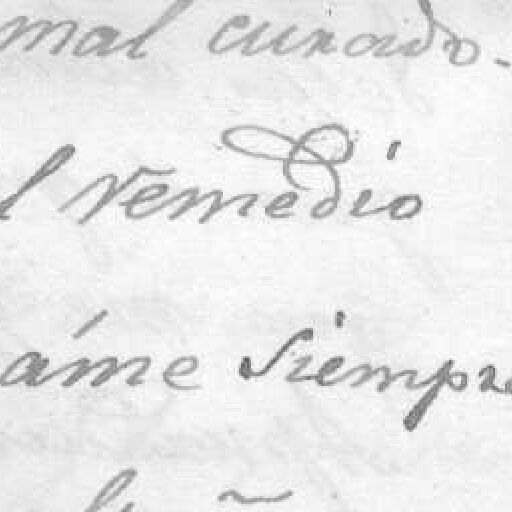 mal curado.
l remedio
áme siempre